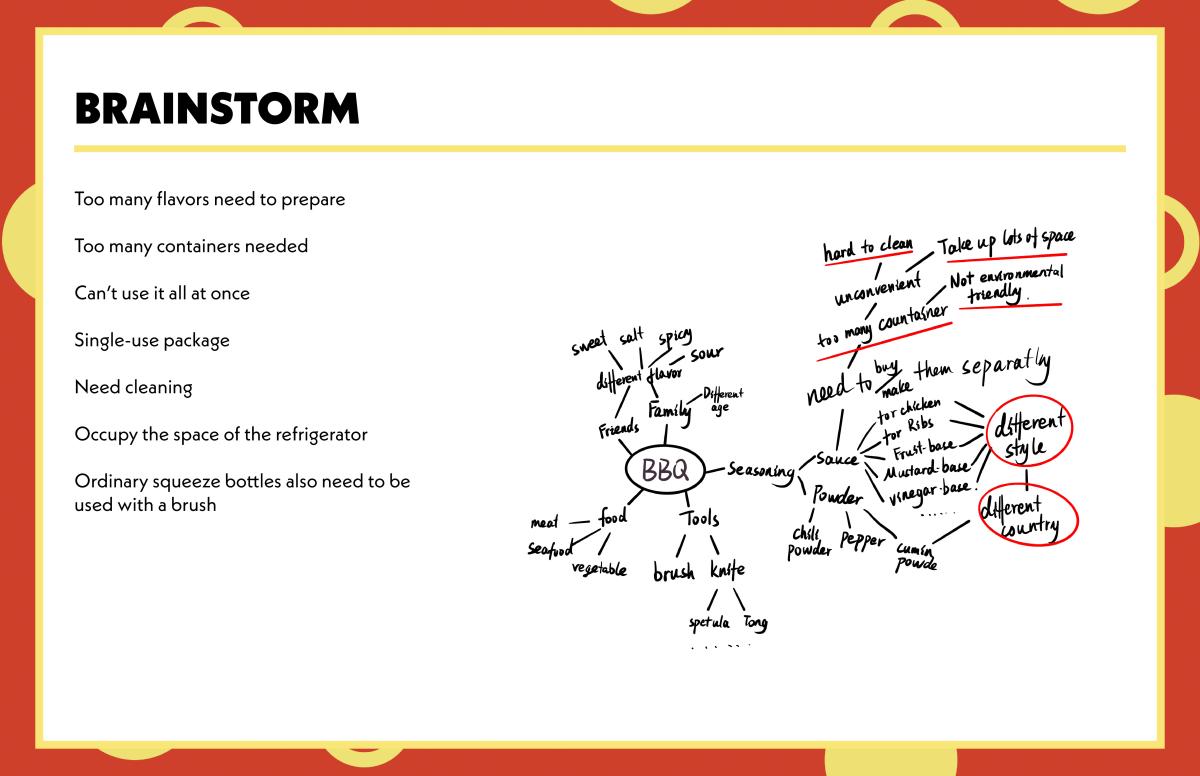 BRAINSTORM
Too many flavors need to prepare
Too many containers needed
Can't use it all at once
Single-use package
Need cleaning
Occupy the space of the refrigerator
Ordinary squeeze bottles also need to be
used with a brush
hard to clean
Take up lots of space
unconvenient
Not environmental
friendly.
too many countainer
need to buy
make
them separatly
sweet
salt
spicy
sour
different flavor
Family
Different
age
Friends
BBQ
Seasoning
Sauce
for chicken
for Ribs
Frust-base
Mustard-base
vinegar-base.
......
different
style
different
country
Powder
chili
powder
Pepper
cumin
powde
food
meat
Seafood
vegetable
Tools
brush
knife
spetula
Tong
......